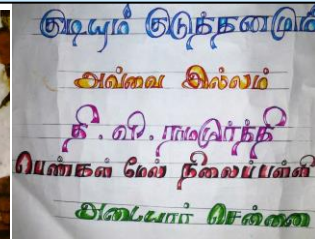 குடியும் குடித்தனமும்
அவ்வை இல்லம்
தி. வி. ராமமூர்த்தி
பெண்கள் மேல் நிலைப்பள்ளி
அடையார் சென்னை